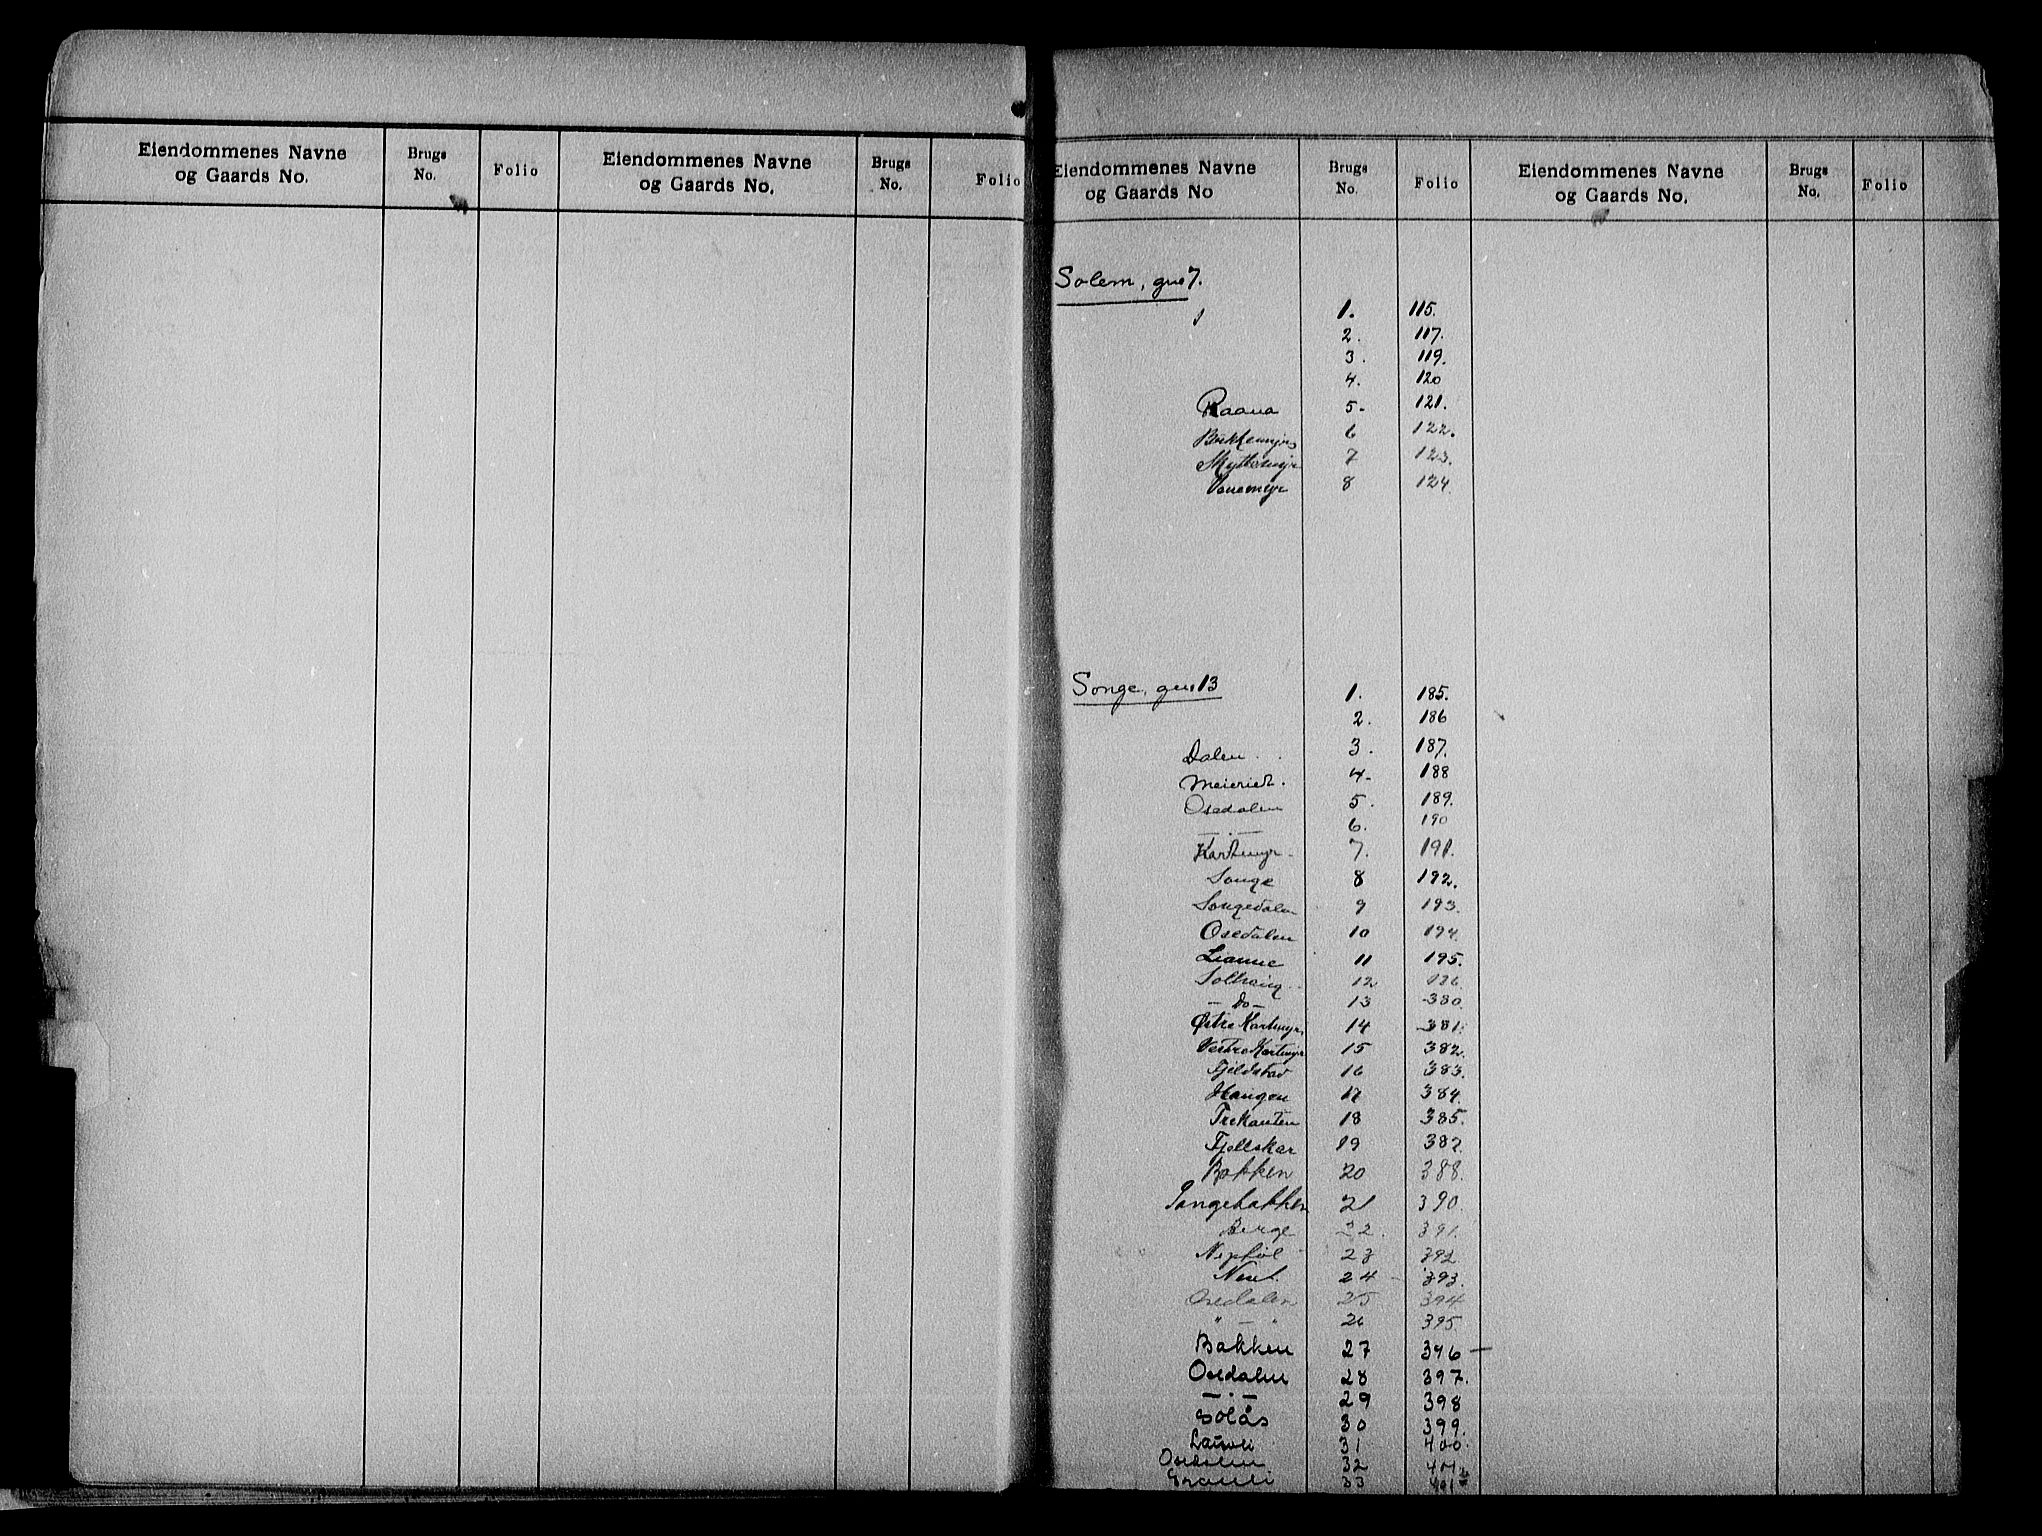 Eiendommenes Navne og Gaards No. Brugs No. Folio Eiendommenes Navne og Gaards No. Brugs No. Folio
Eiendommenes Navne og Gaards No Brugs No. Folio Eiendommenes Navne og Gaards No. Brugs No. Folio
Solem, gno 7.
1. 115.
2. 117.
3. 119.
4. 120
Raana 5- 121.
6 122.
7 123.
8 124.
Songe, gno 13 1. 185.
2. 186
Dalen 3. 187.
Meieriet. 4- 188
Osedalen 5. 189.
—.— 6. 190
Kartmyr 7. 191.
Songe 8 192.
Songedalen 9 193.
Osedalen 10 194.
Lianne 11 195.
Solhaug 12 196.
— Do — 13 380.
Østre Kartmyr 14 381.
Vestre Kartmyr 15 382.
Fjeldstad 16 383.
Haugen 17 384.
Trekanten 18 385.
Fjellskar 19 387.
Bakken 20 388.
Songebakken 21 390.
Berge 22. 391.
23 392
Neset. 24 393.
Osedalen 25 394
" — " 26 395.
Bakken 27 396 —
Osedalen 28 397.
—.— 29 398
Solås 30 399.
Lauvli 31 400.
Osedalen 32 401
Granli 33 401